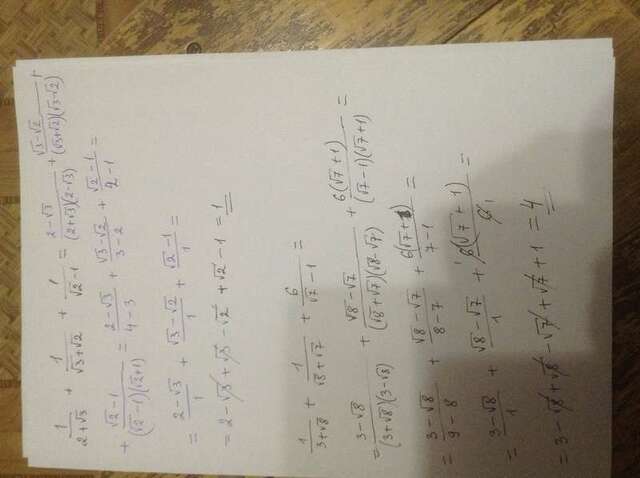 1/(2+√3) + 1/(√3+√2) + 1/(√2-1) = (2-√3)/((2+√3)(2-√3)) + (√3-√2)/((√3+√2)(√3-√2)) +
+ (√2-1)/((√2-1)(√2+1)) = (2-√3)/(4-3) + (√3-√2)/(3-2) + (√2-1)/(2-1) =
= (2-√3)/1 + (√3-√2)/1 + (√2-1)/1 =
= 2-√3+√3-√2 +√2-1 = 1
1/(3+√8) + 1/(√8+√7) + 6/(√7-1) =
= (3-√8)/((3+√8)(3-√8)) + (√8-√7)/((√8+√7)(√8-√7)) + 6(√7+1)/((√7-1)(√7+1)) =
= (3-√8)/(9-8) + (√8-√7)/(8-7) + 6(√7+1)/(7-1) =
= (3-√8)/1 + (√8-√7)/1 + 6(√7+1)/6 =
= 3-√8+√8-√7+√7+1 = 4